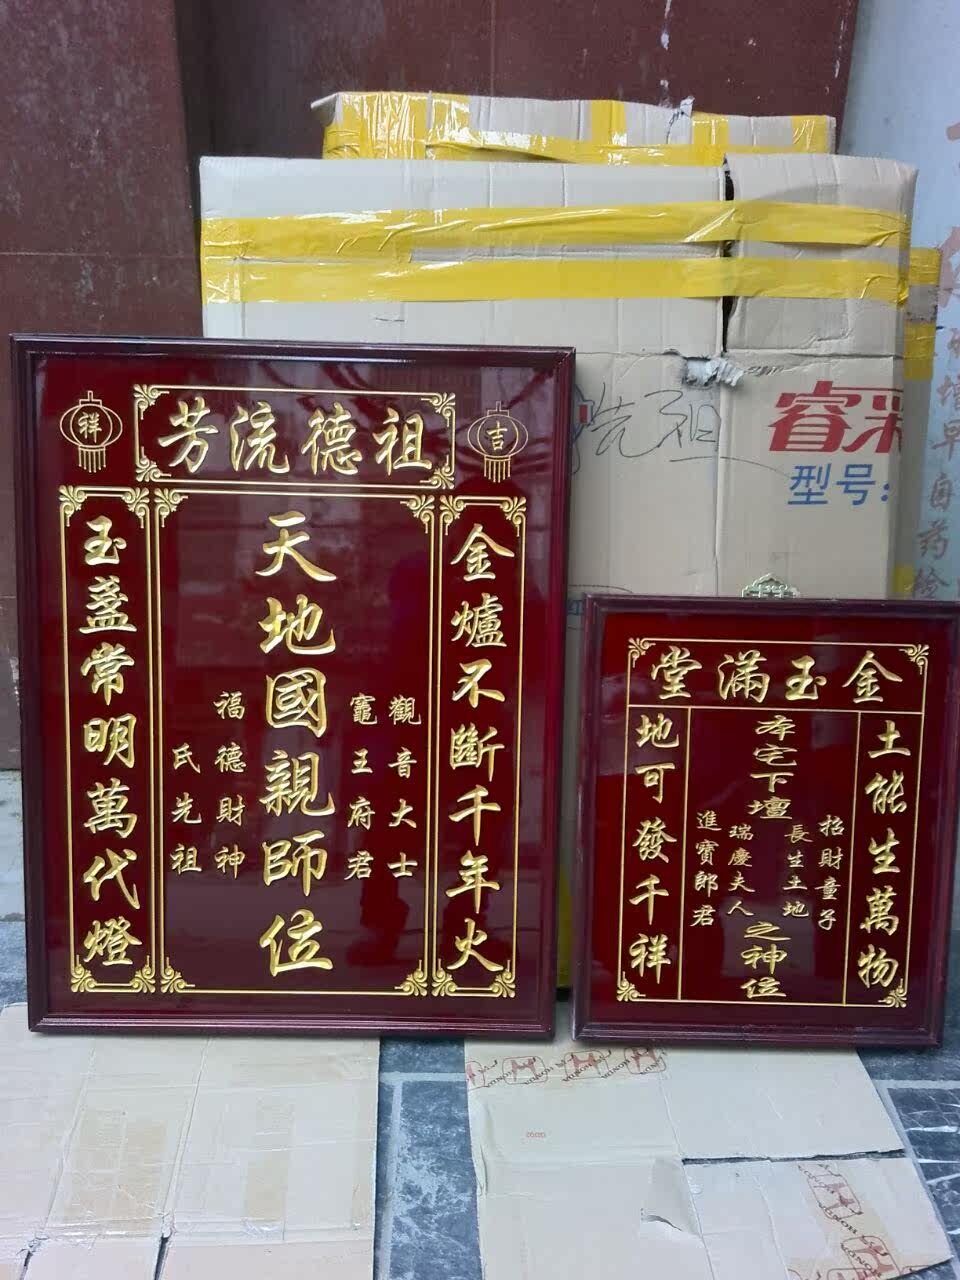 祖德流芳
吉
祥
金爐不斷千年火
觀音大士
竈王府君
天地國親師位
福德財神
氏先祖
玉盞常明萬代燈
金玉滿堂
土能生萬物
招財童子
長生土地
本宅下壇
之神位
瑞慶夫人
進寶郎君
地可發千祥
睿采
型号:
先祖
HONDA